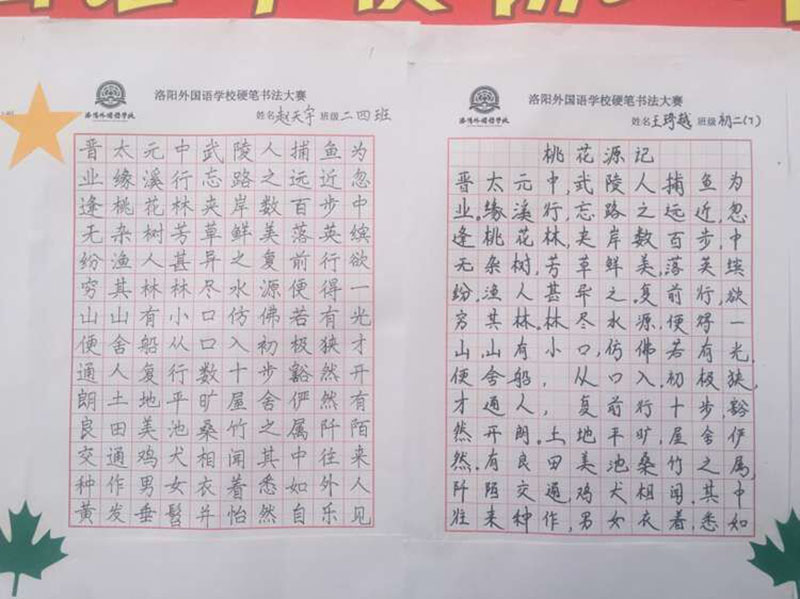 洛阳外国语学校
洛阳外国语学校硬笔书法大赛
姓名 赵天宇 班级 二四班
晋太元中武陵人捕鱼为
业缘溪行忘路之远近忽
逢桃花林夹岸数百步中
无杂树芳草鲜美落英缤
纷渔人甚异之复前行欲
穷其林林尽水源便得一
山山有小口仿佛若有光
便舍船从口入初极狭才
通人复行数十步豁然开
朗土地平旷屋舍俨然有
良田美池桑竹之属阡陌
交通鸡犬相闻其中往来
种作男女衣着悉如外人
黄发垂髫并怡然自乐见
洛阳外国语学校
洛阳外国语学校硬笔书法大赛
姓名 王琦越 班级 初二(7)
桃花源记
晋太元中,武陵人捕鱼为
业。缘溪行,忘路之远近,忽
逢桃花林,夹岸数百步,中
无杂树,芳草鲜美,落英缤
纷,渔人甚异之,复前行,欲
穷其林。林尽水源,便得一
山,山有小口,仿佛若有光,
便舍船,从口入,初极狭,
才通人,复前行十步,豁
然开朗。土地平旷,屋舍俨
然。有良田美池桑竹之属,
阡陌交通,鸡犬相闻,其中
往来种作,男女衣着,悉如